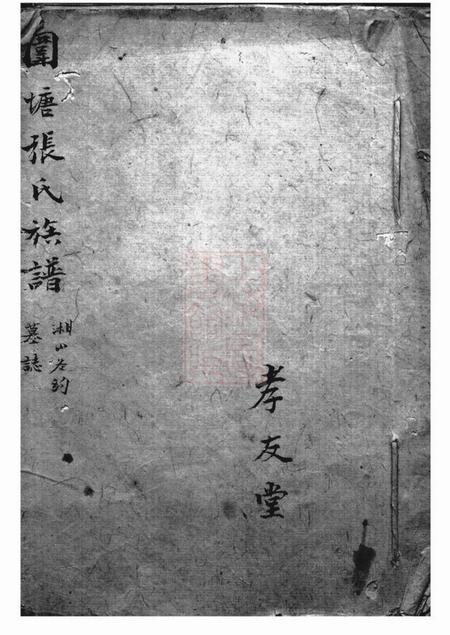 圍塘張氏族譜
湘山名約
墓誌
孝友堂